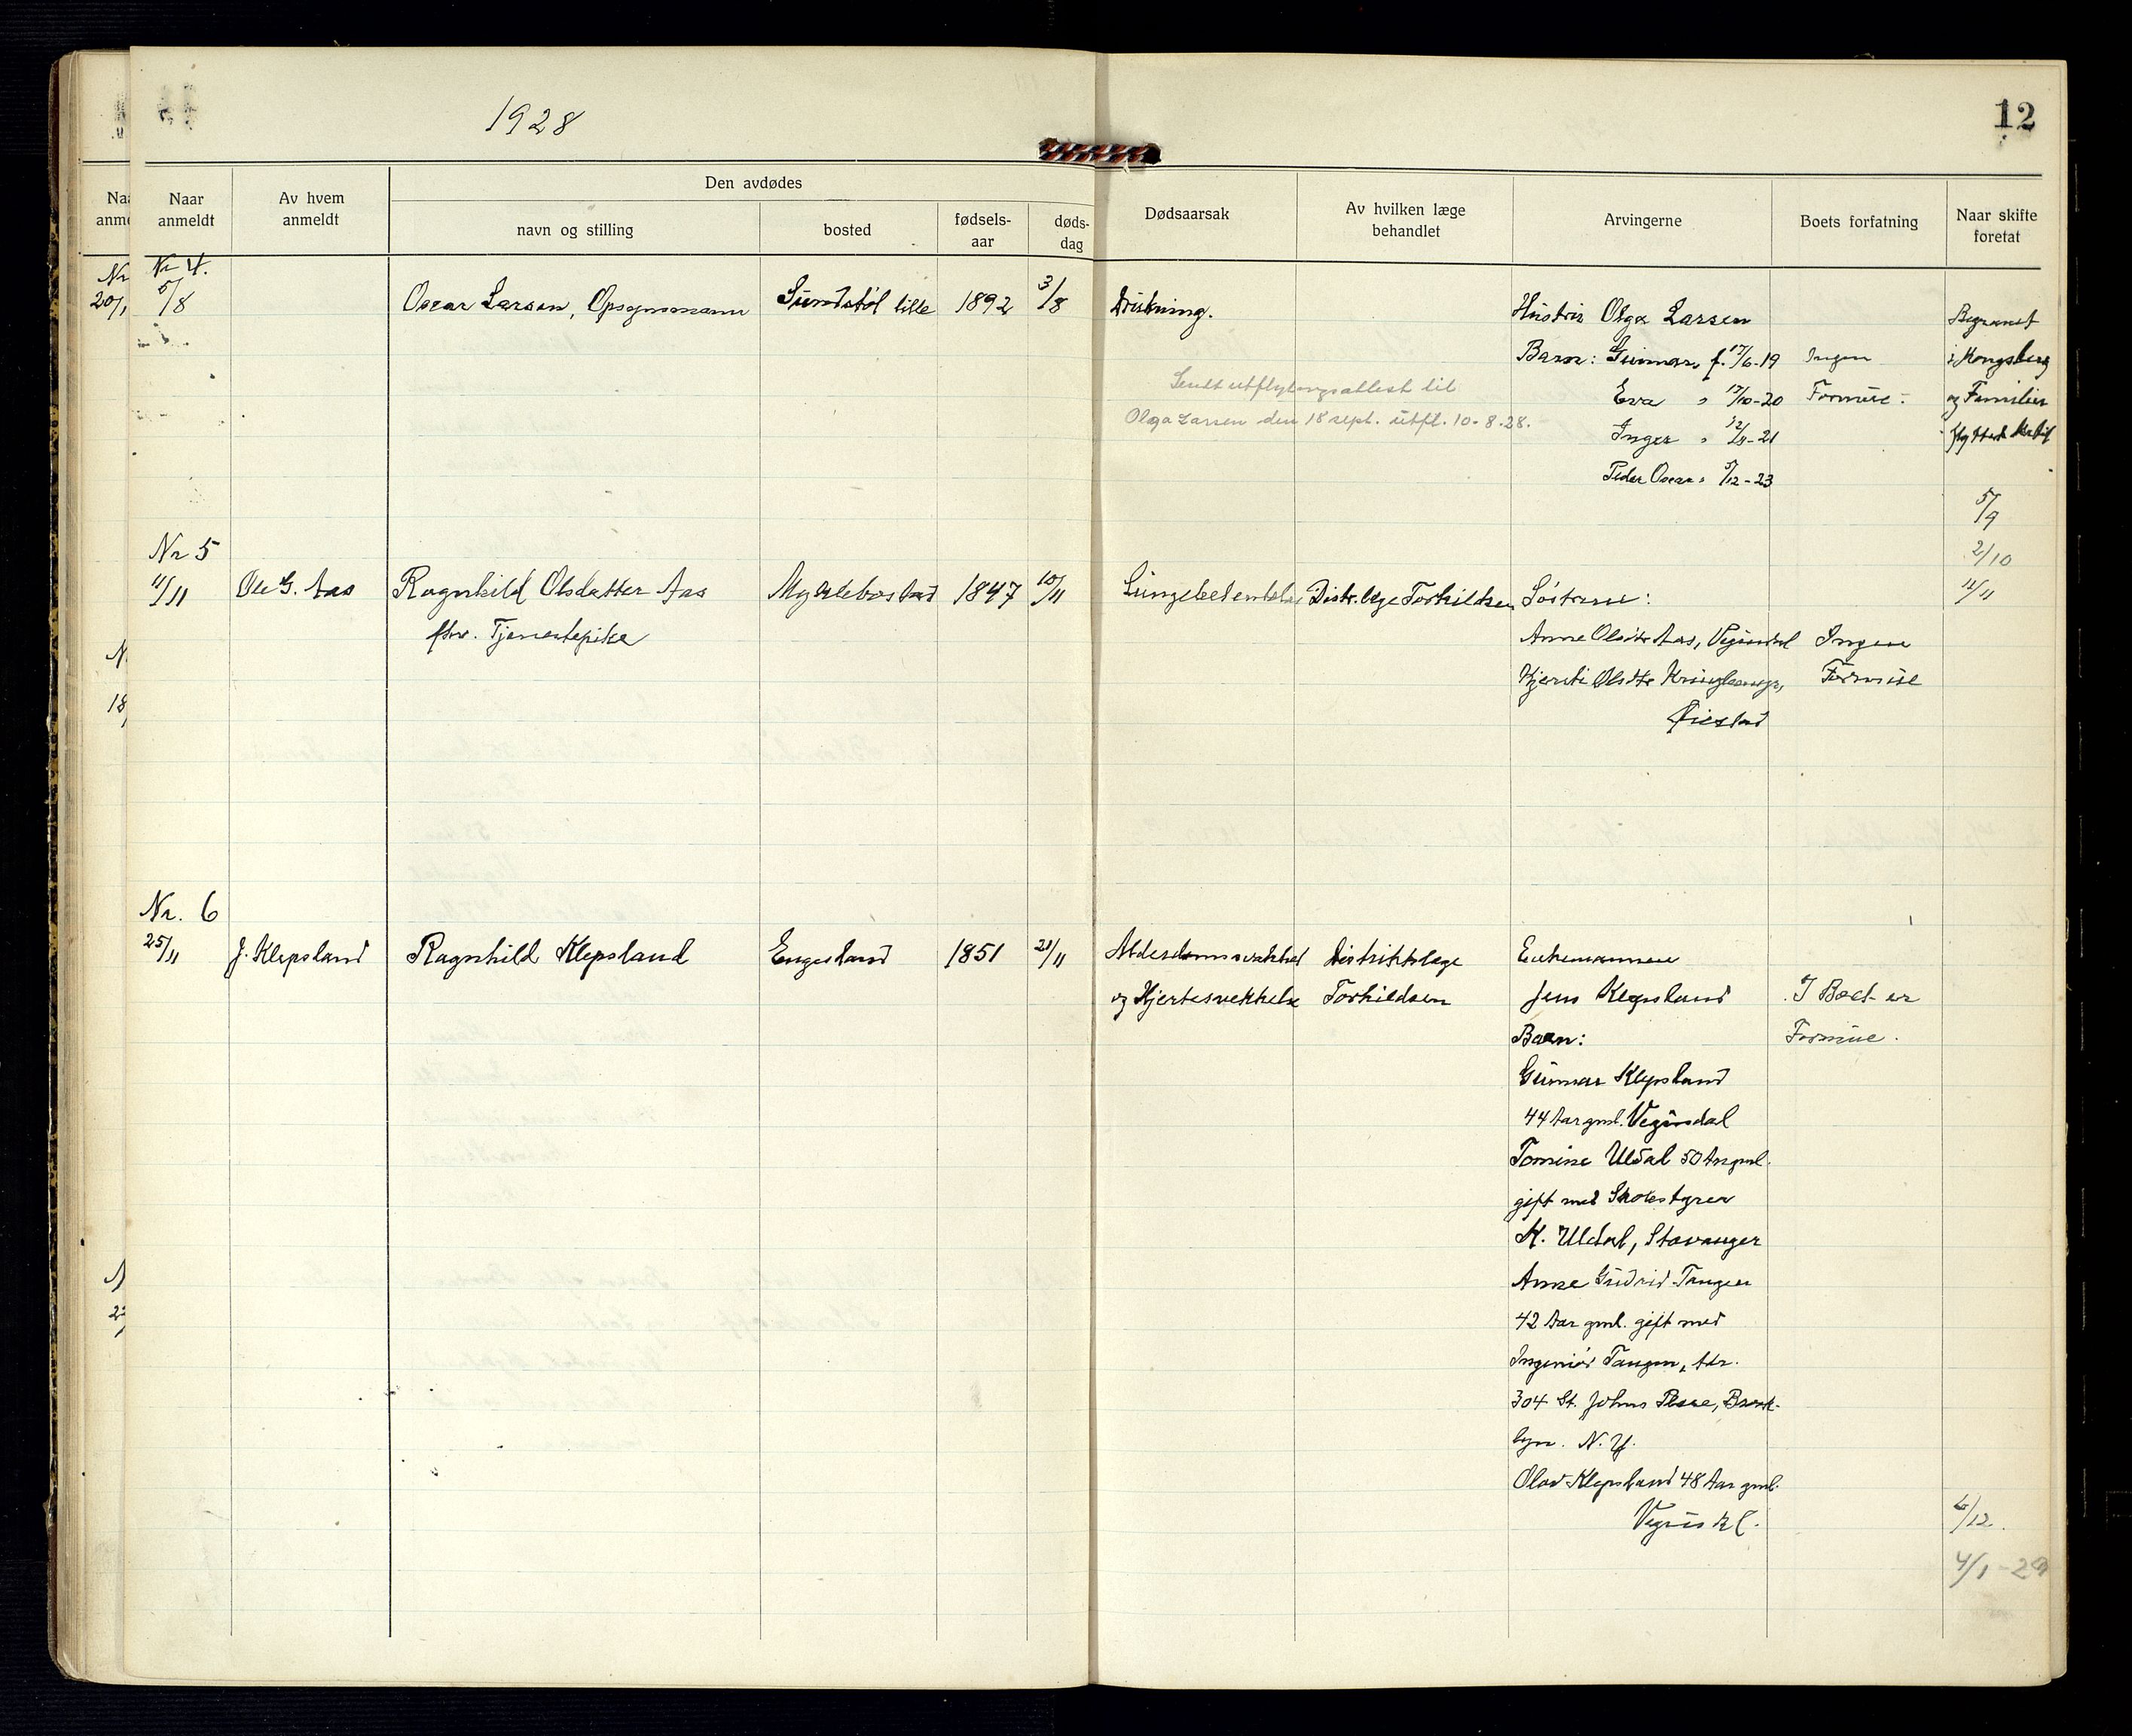 1928
12
Naar anmeldt
Av hvem anmeldt
Den avdødes
navn og stilling
bosted
fødselsaar
dødsdag
Dødsaarsak
Av hvilken læge behandlet
Arvingerne
Boets forfatning
Naar skifte foretat
Nr 4.
5/8
Oscar Larsen, Opsynsmann
Sundstøl lille
1892
3/8
Drukning.
Sendt utflytningsattest til
Olga Larsen den 18 sept. utfl. 10-8-28.
Hustru Olga Larsen
Barn: Gunnar, f. 17/6-19
Eva " 17/10-20
Inger " 12/8-21
Peder Oscar " 5/12-23
Ingen
Formue.
Begravet
i Kongsberg
og Familien
flyttet
5/9
2/10
Nr 5
11/11
Ole G. Aas
Ragnhild Olsdatter Aas
fhv. Tjenestepike
Myklebostad
1847
10/11
Lungebetendelse
Distr.læge Torkildsen
Søstrene:
Anne Olsdtr Aas, Vegusdal
Kjersti Olsdtr
Øiestad
Ingen
Formue
11/11
Nr. 6
25/11
J. Klepsland
Ragnhild Klepsland
Engesland
1851
21/11
Alderdomssvakhet
og Hjertesvekkelse
Distriktslæge
Torkildsen
Enkemannen
Jens Klepsland
Barn:
Gunnar Klepsland
44 Aar gml. Vegusdal
Tomine Uldal 50 Aar gml.
gift med Skolestyrer
K. Uldal, Stavanger
Anne Gudrid Tangen
42 Aar gml. gift med
Ingeniør Tangen, Adr.
304 St. Johns Place, Brook-
lyn. N.Y.
Olav Klepsland 48 Aar gml.
I Boet er
Formue.
4/1-29